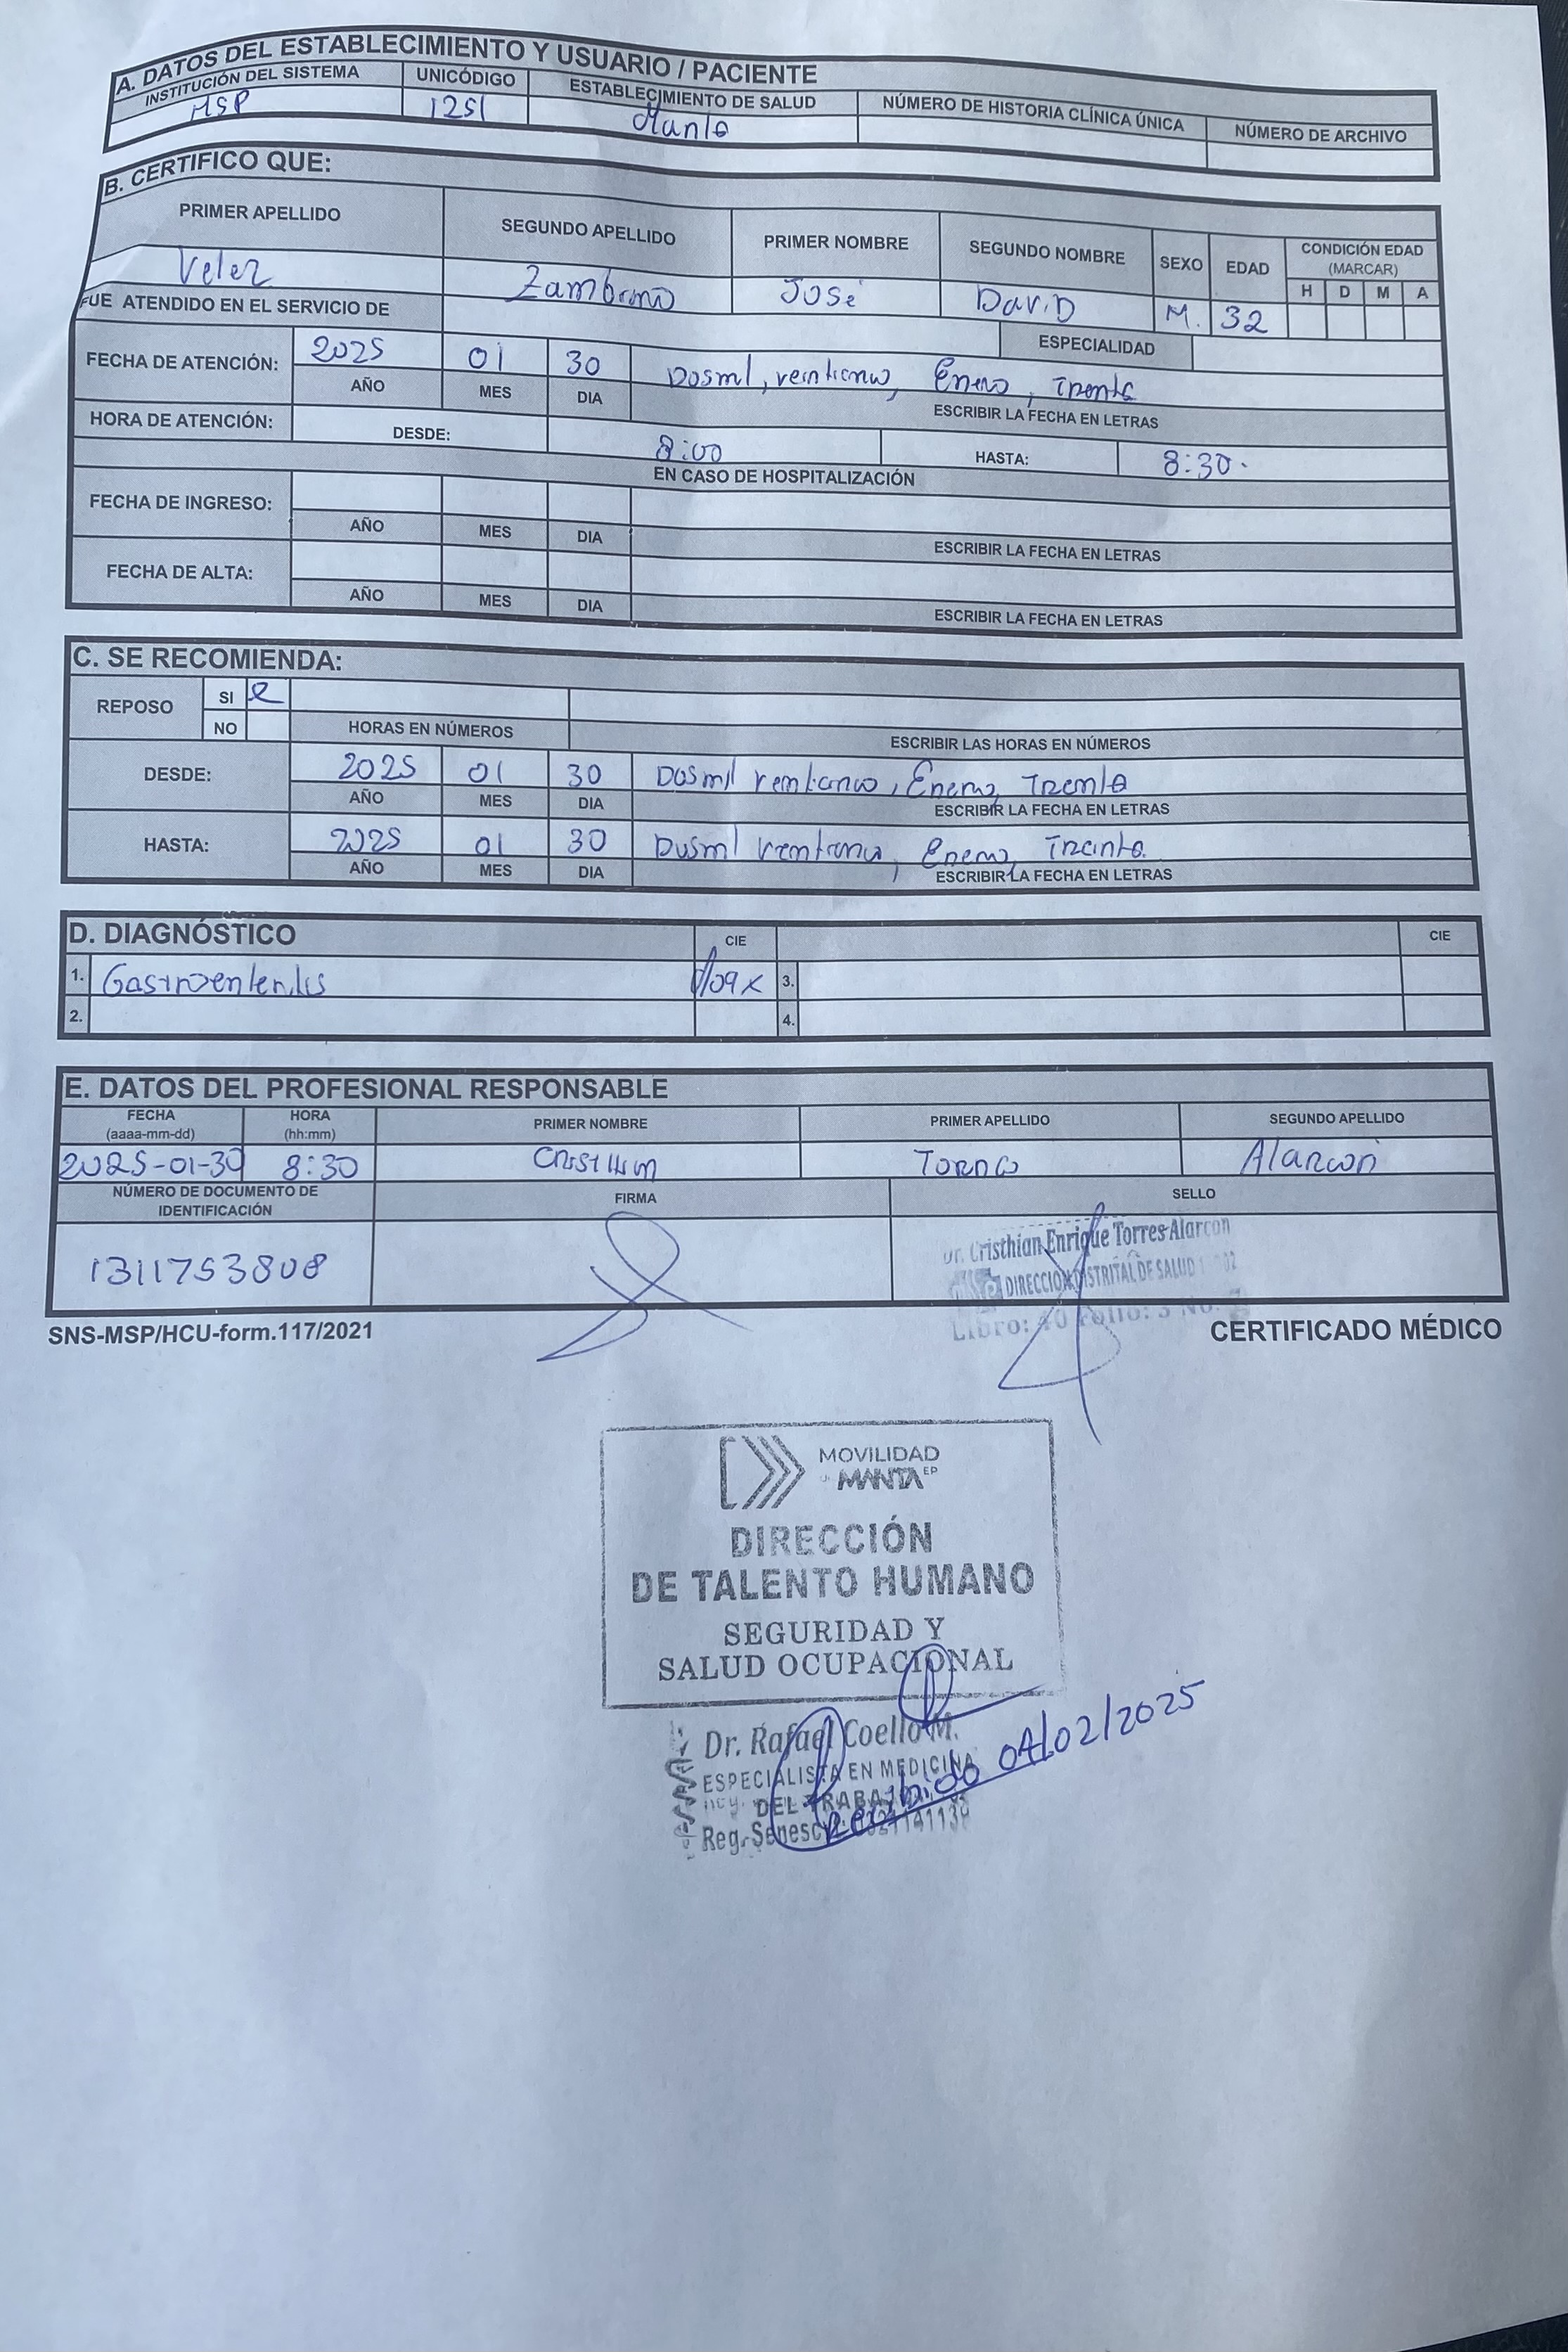 A. DATOS DEL ESTABLECIMIENTO Y USUARIO / PACIENTE
INSTITUCIÓN DEL SISTEMA UNICÓDIGO ESTABLECIMIENTO DE SALUD NÚMERO DE HISTORIA CLÍNICA ÚNICA NÚMERO DE ARCHIVO
MSP 1251 Manta
B. CERTIFICO QUE:
PRIMER APELLIDO SEGUNDO APELLIDO PRIMER NOMBRE SEGUNDO NOMBRE SEXO EDAD CONDICIÓN EDAD
(MARCAR)
H D M A
Velez Zambrano José DaviD M. 32
FUE ATENDIDO EN EL SERVICIO DE ESPECIALIDAD
FECHA DE ATENCIÓN: 2025 01 30 Dosmil, veinticinco, Enero, Treinta
AÑO MES DIA ESCRIBIR LA FECHA EN LETRAS
HORA DE ATENCIÓN: DESDE: 8:00 HASTA: 8:30.
EN CASO DE HOSPITALIZACIÓN
FECHA DE INGRESO:
AÑO MES DIA ESCRIBIR LA FECHA EN LETRAS
FECHA DE ALTA:
AÑO MES DIA ESCRIBIR LA FECHA EN LETRAS
C. SE RECOMIENDA:
REPOSO SI
NO HORAS EN NÚMEROS ESCRIBIR LAS HORAS EN NÚMEROS
DESDE: 2025 01 30 Dosmil veinticinco, Enero, Treinta
AÑO MES DIA ESCRIBIR LA FECHA EN LETRAS
HASTA: 2025 01 30 Dosmil veinticinco, Enero, Treinta.
AÑO MES DIA ESCRIBIR LA FECHA EN LETRAS
D. DIAGNÓSTICO CIE CIE
1. Gastroenteritis A09X 3.
2. 4.
E. DATOS DEL PROFESIONAL RESPONSABLE
FECHA HORA PRIMER NOMBRE PRIMER APELLIDO SEGUNDO APELLIDO
(aaaa-mm-dd) (hh:mm)
2025-01-30 8:30 Cristhian Torres Alarcon
NÚMERO DE DOCUMENTO DE IDENTIFICACIÓN FIRMA SELLO
1311753808
Dr. Cristhian Enrique Torres Alarcon
DIRECCION DISTRITAL DE SALUD
Libro: 40 Folio: 3 No.
SNS-MSP/HCU-form.117/2021 CERTIFICADO MÉDICO
MOVILIDAD
MANTA EP
DIRECCIÓN
DE TALENTO HUMANO
SEGURIDAD Y
SALUD OCUPACIONAL
Dr. Rafael Coello M.
ESPECIALISTA EN MEDICINA
DEL TRABAJO
Reg. Senescyt
Recibido 04/02/2025